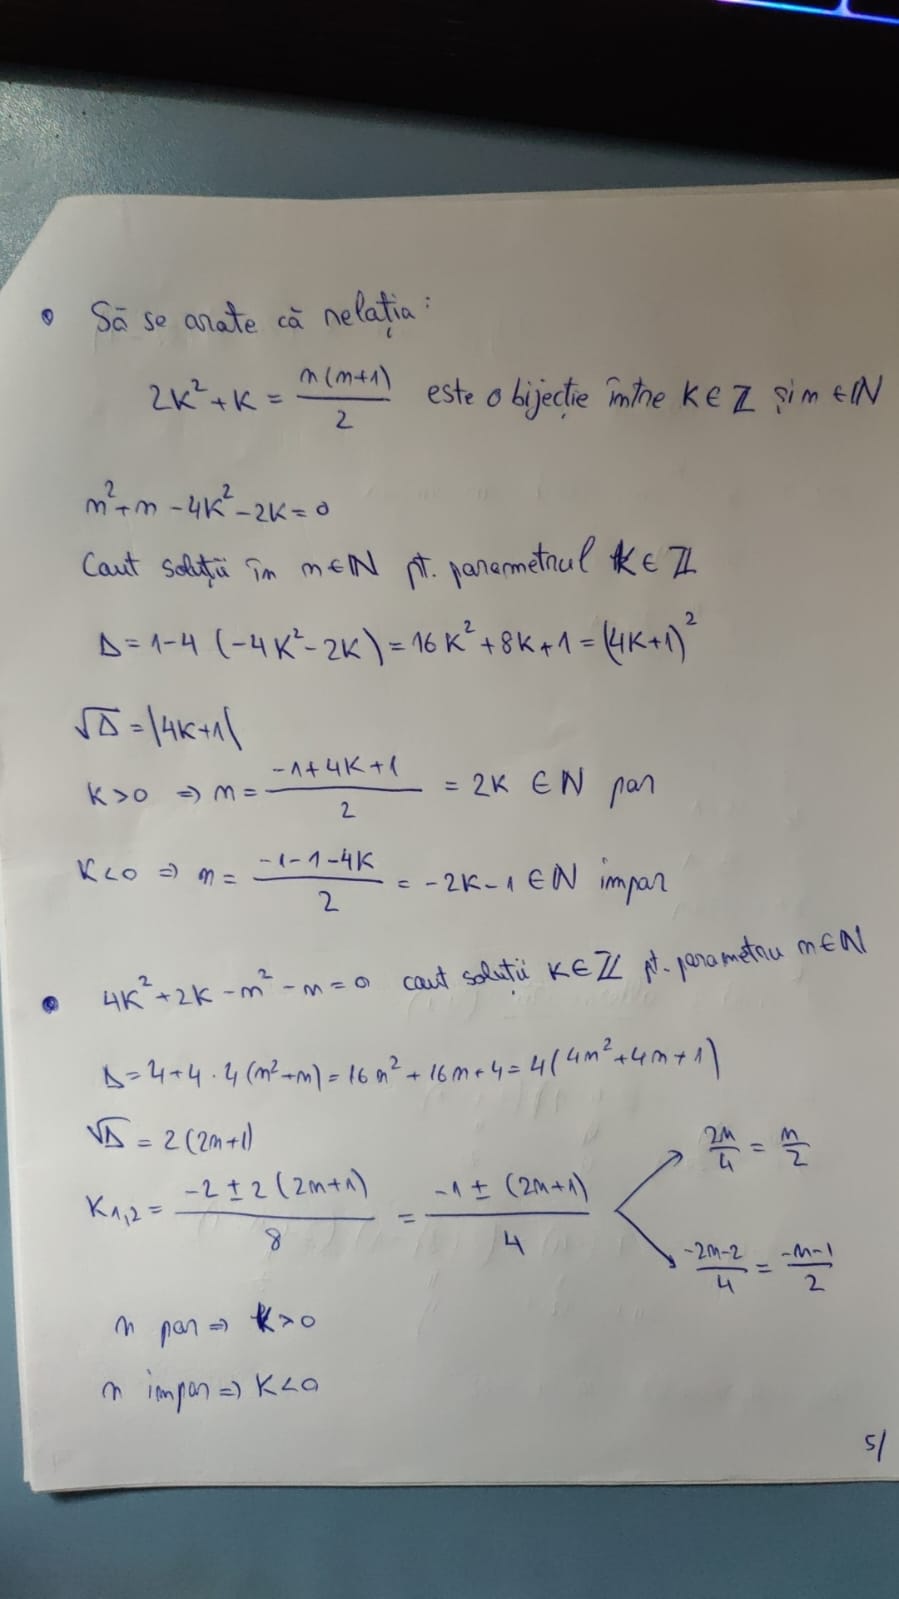 • Să se arate că relația:
2K² + K = n(n+1)/2 este o bijecție între K ∈ ℤ și n ∈ ℕ
n² + n - 4K² - 2K = 0
Caut soluții în n ∈ ℕ pt. parametrul K ∈ ℤ
Δ = 1 - 4 (-4K² - 2K) = 16K² + 8K + 1 = (4K+1)²
√Δ = |4K+1|
K > 0 ⇒ n = (-1 + 4K + 1)/2 = 2K ∈ ℕ par
K < 0 ⇒ n = (-1 - 1 - 4K)/2 = -2K - 1 ∈ ℕ impar
• 4K² + 2K - n² - n = 0 caut soluții K ∈ ℤ pt. parametru n ∈ ℕ
Δ = 4 + 4 · 4 (n² + n) = 16n² + 16n + 4 = 4(4n² + 4n + 1)
√Δ = 2(2n+1)
K₁,₂ = (-2 ± 2(2n+1))/8 = (-1 ± (2n+1))/4
2n/4 = n/2
(-2n-2)/4 = (-n-1)/2
n par ⇒ K > 0
n impar ⇒ K < 0
5/